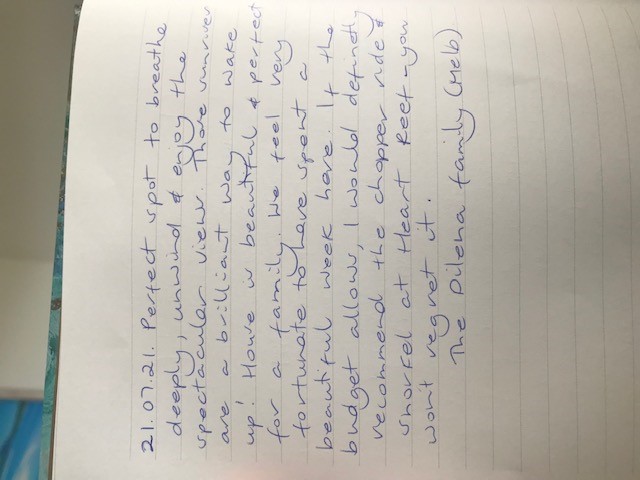 21.07.21. Perfect spot to breathe
deeply, unwind & enjoy the
spectacular views. Those sunrises
are a brilliant way to wake
up! House is beautiful & perfect
for a family. We feel very
fortunate to have spent a
beautiful week here. If the
budget allows, I would definetly
recommend the chopper ride &
snorkel at Heart Reef - you
wont regret it.
The Dilena family (Melb)